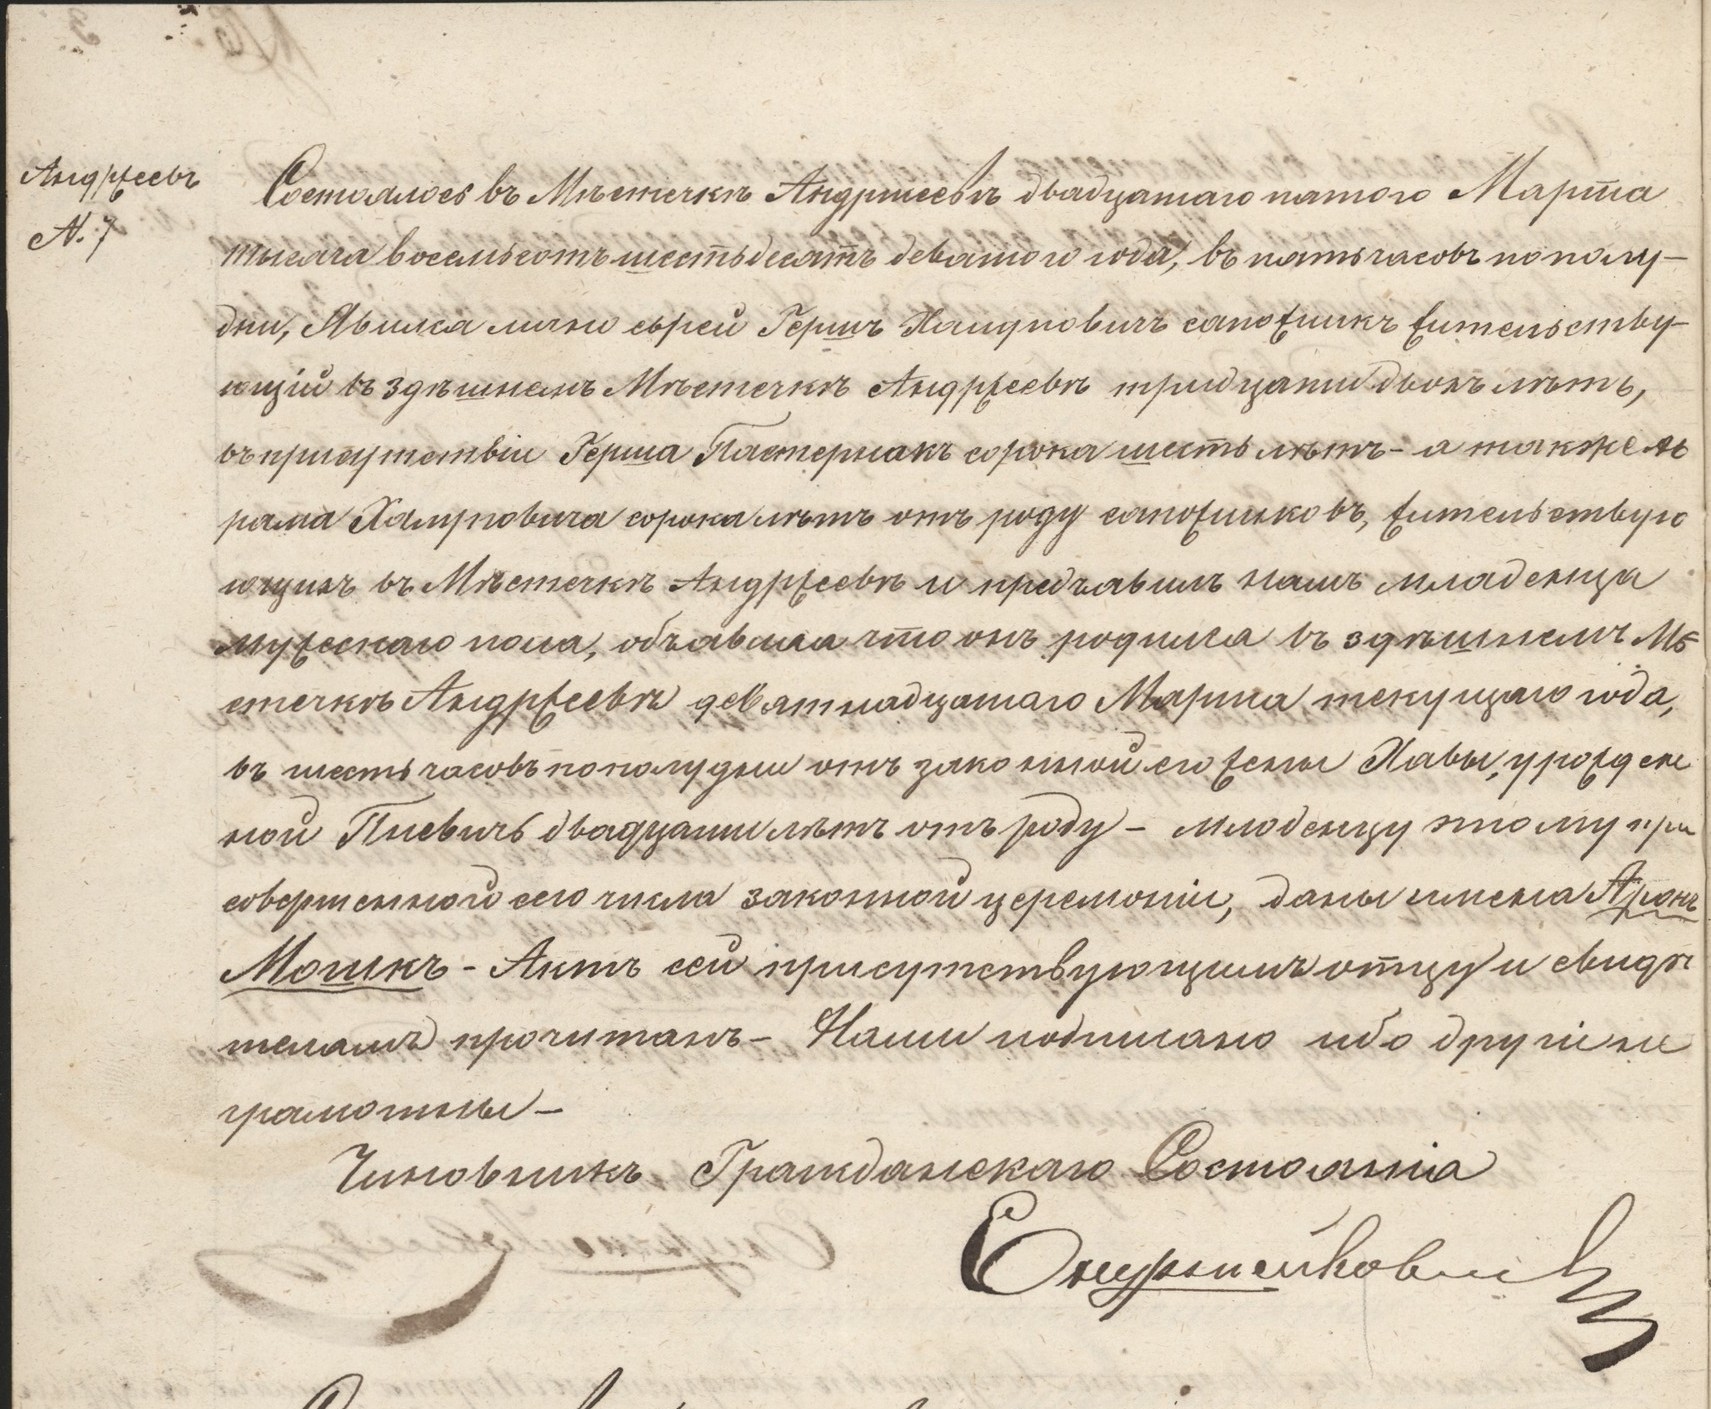 Андржеевъ
N. 7
Состоялось въ Мѣстечкѣ Андржеевѣ двадцатаго пятого Марта
тысяча восемьсотъ шестьдесятъ девятого года, въ пять часовъ по полу-
дни, Явился лично еврей Гершъ сапожникъ жительству-
ющій въ здѣшнемъ Мѣстечкѣ Андржеевѣ тридцати двохъ лѣтъ,
въ присутствіи Герша Пастернакъ сорока шесть лѣтъ - а также Аб
рама сорока лѣтъ отъ роду сапожниковъ, жительствую
ющихъ въ Мѣстечкѣ Андржеевѣ и предъявилъ намъ младенца
мужескаго пола, объявляя что онъ родился въ здѣшнемъ Мѣ
стечкѣ Андржеевѣ девятнадцатаго Марта текущаго года,
въ шесть часовъ по полудни отъ законной его жены Хавы, урожден
ной двадцати лѣтъ отъ роду - младенцу этому при
совершенной сего числа законной церемоніи, даны имена Аронъ
Мошкъ - Актъ сей присутствующимъ отцу и свидѣ
телямъ прочитанъ - Нами подписано ибо другіи не
грамотны -
Чиновникъ Гражданскаго Состоянія